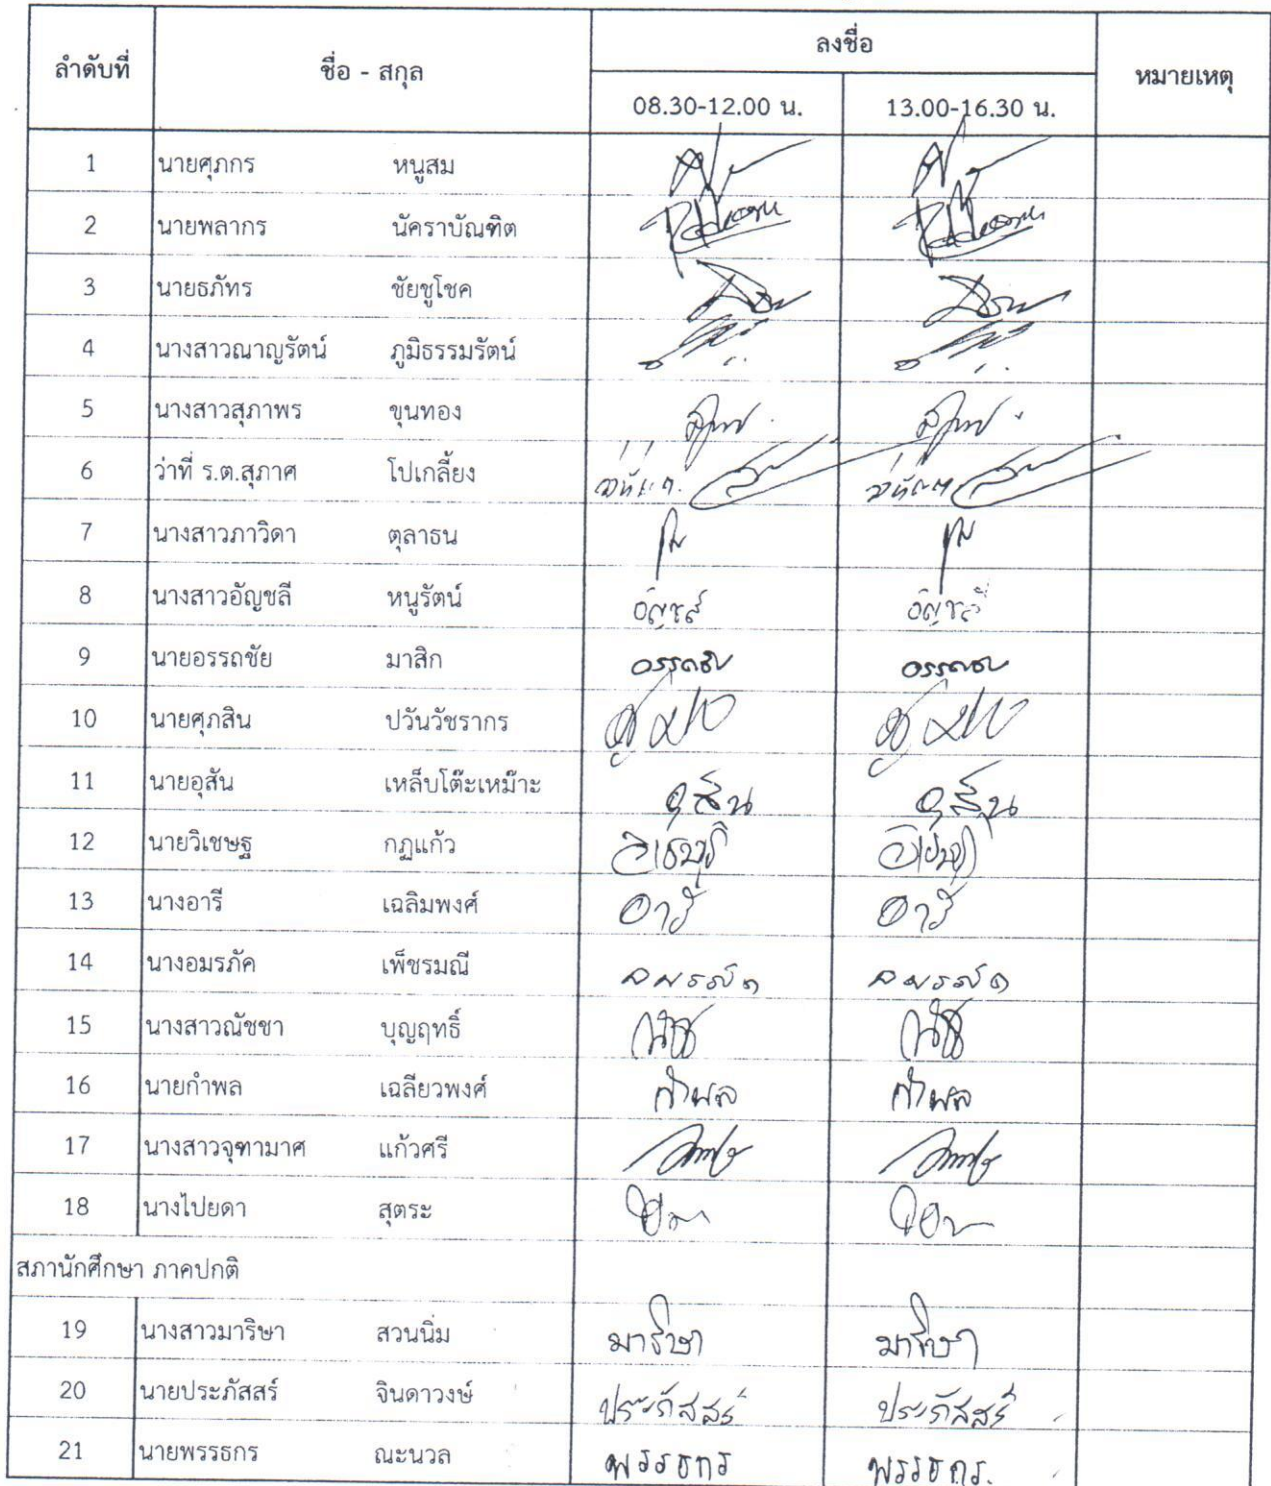 ลำดับที่ ชื่อ - สกุล ลงชื่อ หมายเหตุ
08.30-12.00 น. 13.00-16.30 น.
1 นายศุภกร หนูสม
2 นายพลากร นัคราบัณฑิต
3 นายธภัทร ชัยชูโชค
4 นางสาวณาญรัตน์ ภูมิธรรมรัตน์
5 นางสาวสุภาพร ขุนทอง
6 ว่าที่ ร.ต.สุภาศ โปเกลี้ยง
7 นางสาวภาวิดา ตุลาธน
8 นางสาวอัญชลี หนูรัตน์ อัญชลี อัญชลี
9 นายอรรถชัย มาสิก
10 นายศุภสิน ปวันวัชรากร
11 นายอุสัน เหล็บโต๊ะเหม๊าะ อุสัน อุสัน
12 นายวิเชษฐ กฏแก้ว
13 นางอารี เฉลิมพงศ์ อารี อารี
14 นางอมรภัค เพ็ชรมณี อมรภัค อมรภัค
15 นางสาวณัชชา บุญฤทธิ์
16 นายกำพล เฉลียวพงศ์ กำพล กำพล
17 นางสาวจุฑามาศ แก้วศรี
18 นางไปยดา สุตระ
สภานักศึกษา ภาคปกติ
19 นางสาวมาริษา สวนนิ่ม มาริษา มาริษา
20 นายประภัสสร์ จินดาวงษ์ ประภัสสร์ ประภัสสร์
21 นายพรรธกร ณะนวล พรรธกร พรรธกร.